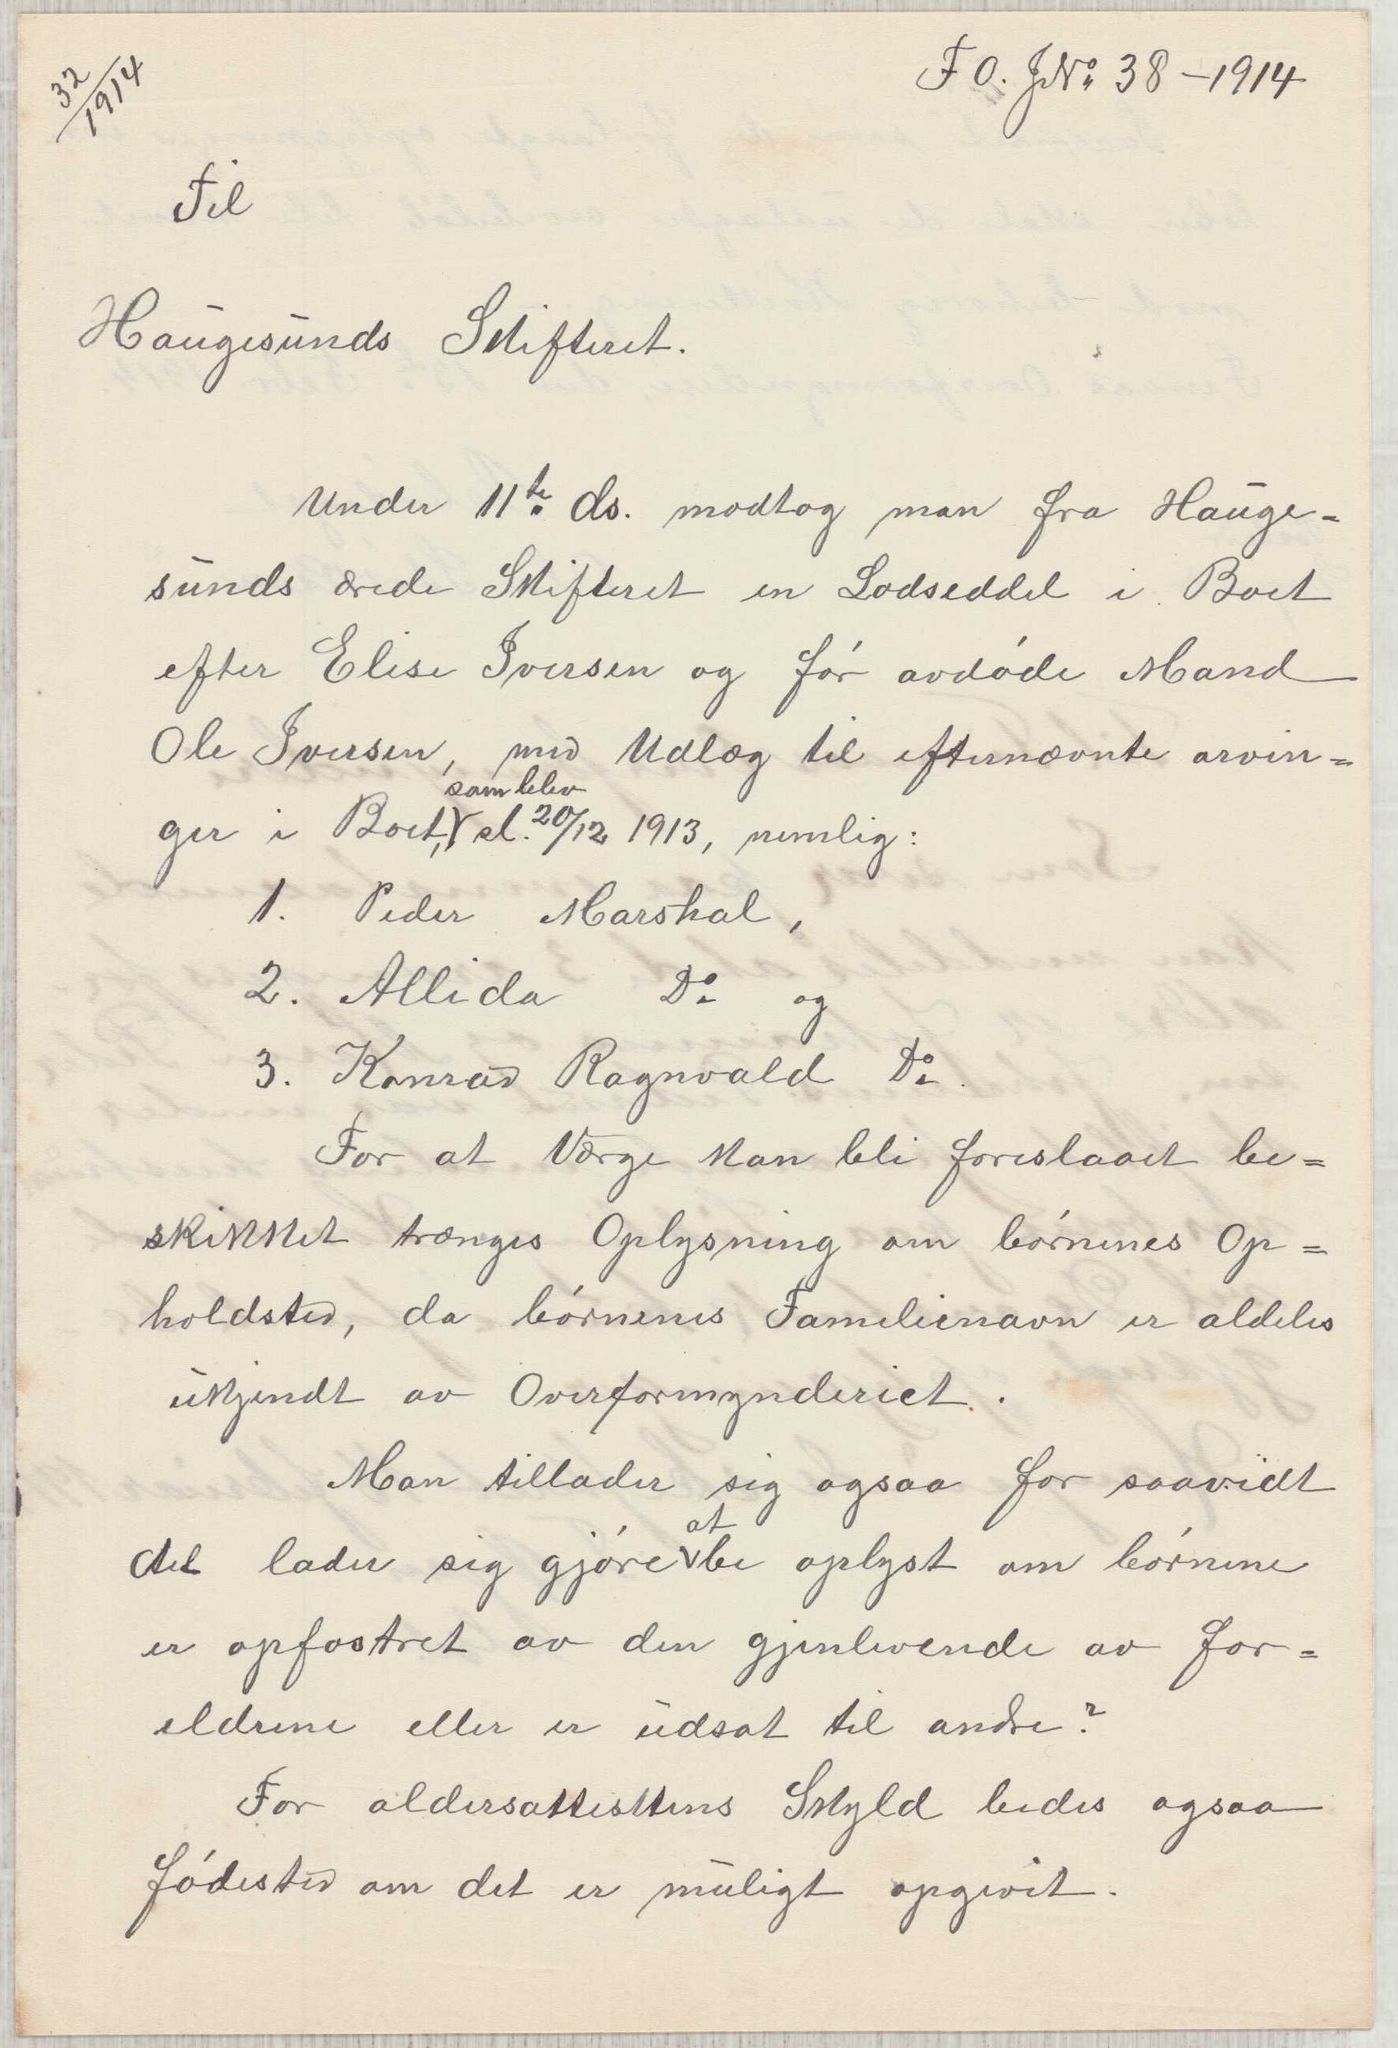 32/1914
F O. J№ 38-1914
Til
Haugesunds Skifteret.
Under 11te ds. modtog man fra Hauge=
sunds ærede Skifteret en Lodseddel i Boet
efter Elise Iversen og før avdøde Mand
Ole Iversen, med Udlæg til efternævnte arvin=
ger i Boet, som blev sl. 20/12 1913, nemlig:
1. Peder Marshal,
2. Allida Do og
3. Konrad Ragnvald Do.
For at Værge kan bli foreslaaet be=
skikket trænges Oplysning om børnenes Op=
holdsted, da børnenes Familienavn er aldeles
ukjendt av Overformynderiet.
Man tillader sig ogsaa for saavidt
det lader sig gjøre at be oplyst om børnene
er opfostret av den gjenlevende av for=
eldrene eller er udsat til andre?
For aldersattestens Skyld bedes ogsaa
fødested om det er muligt opgivet.